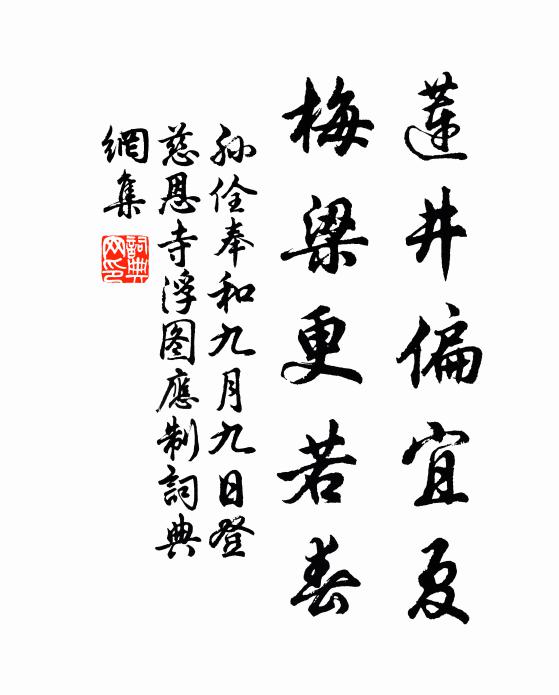 蓮井偏宜夏
梅梁更若春
孙佺奉和九月九日登
慈恩寺浮图應制詞典
網集
詞典網印